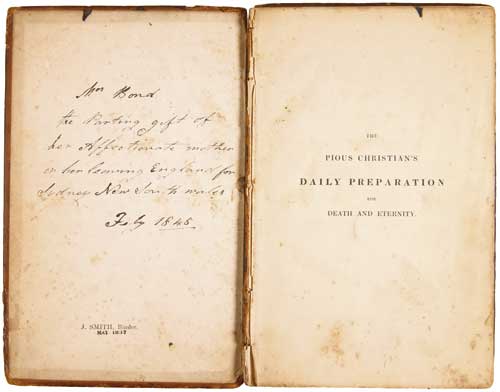 Mrs Bond
the Parting gift of
her Affectionate mother
on her leaving England for
Sydney New South wales
Feby 1848
J. SMITH, Binder.
MAY 1837
THE
PIOUS CHRISTIAN'S
DAILY PREPARATION
FOR
DEATH AND ETERNITY.